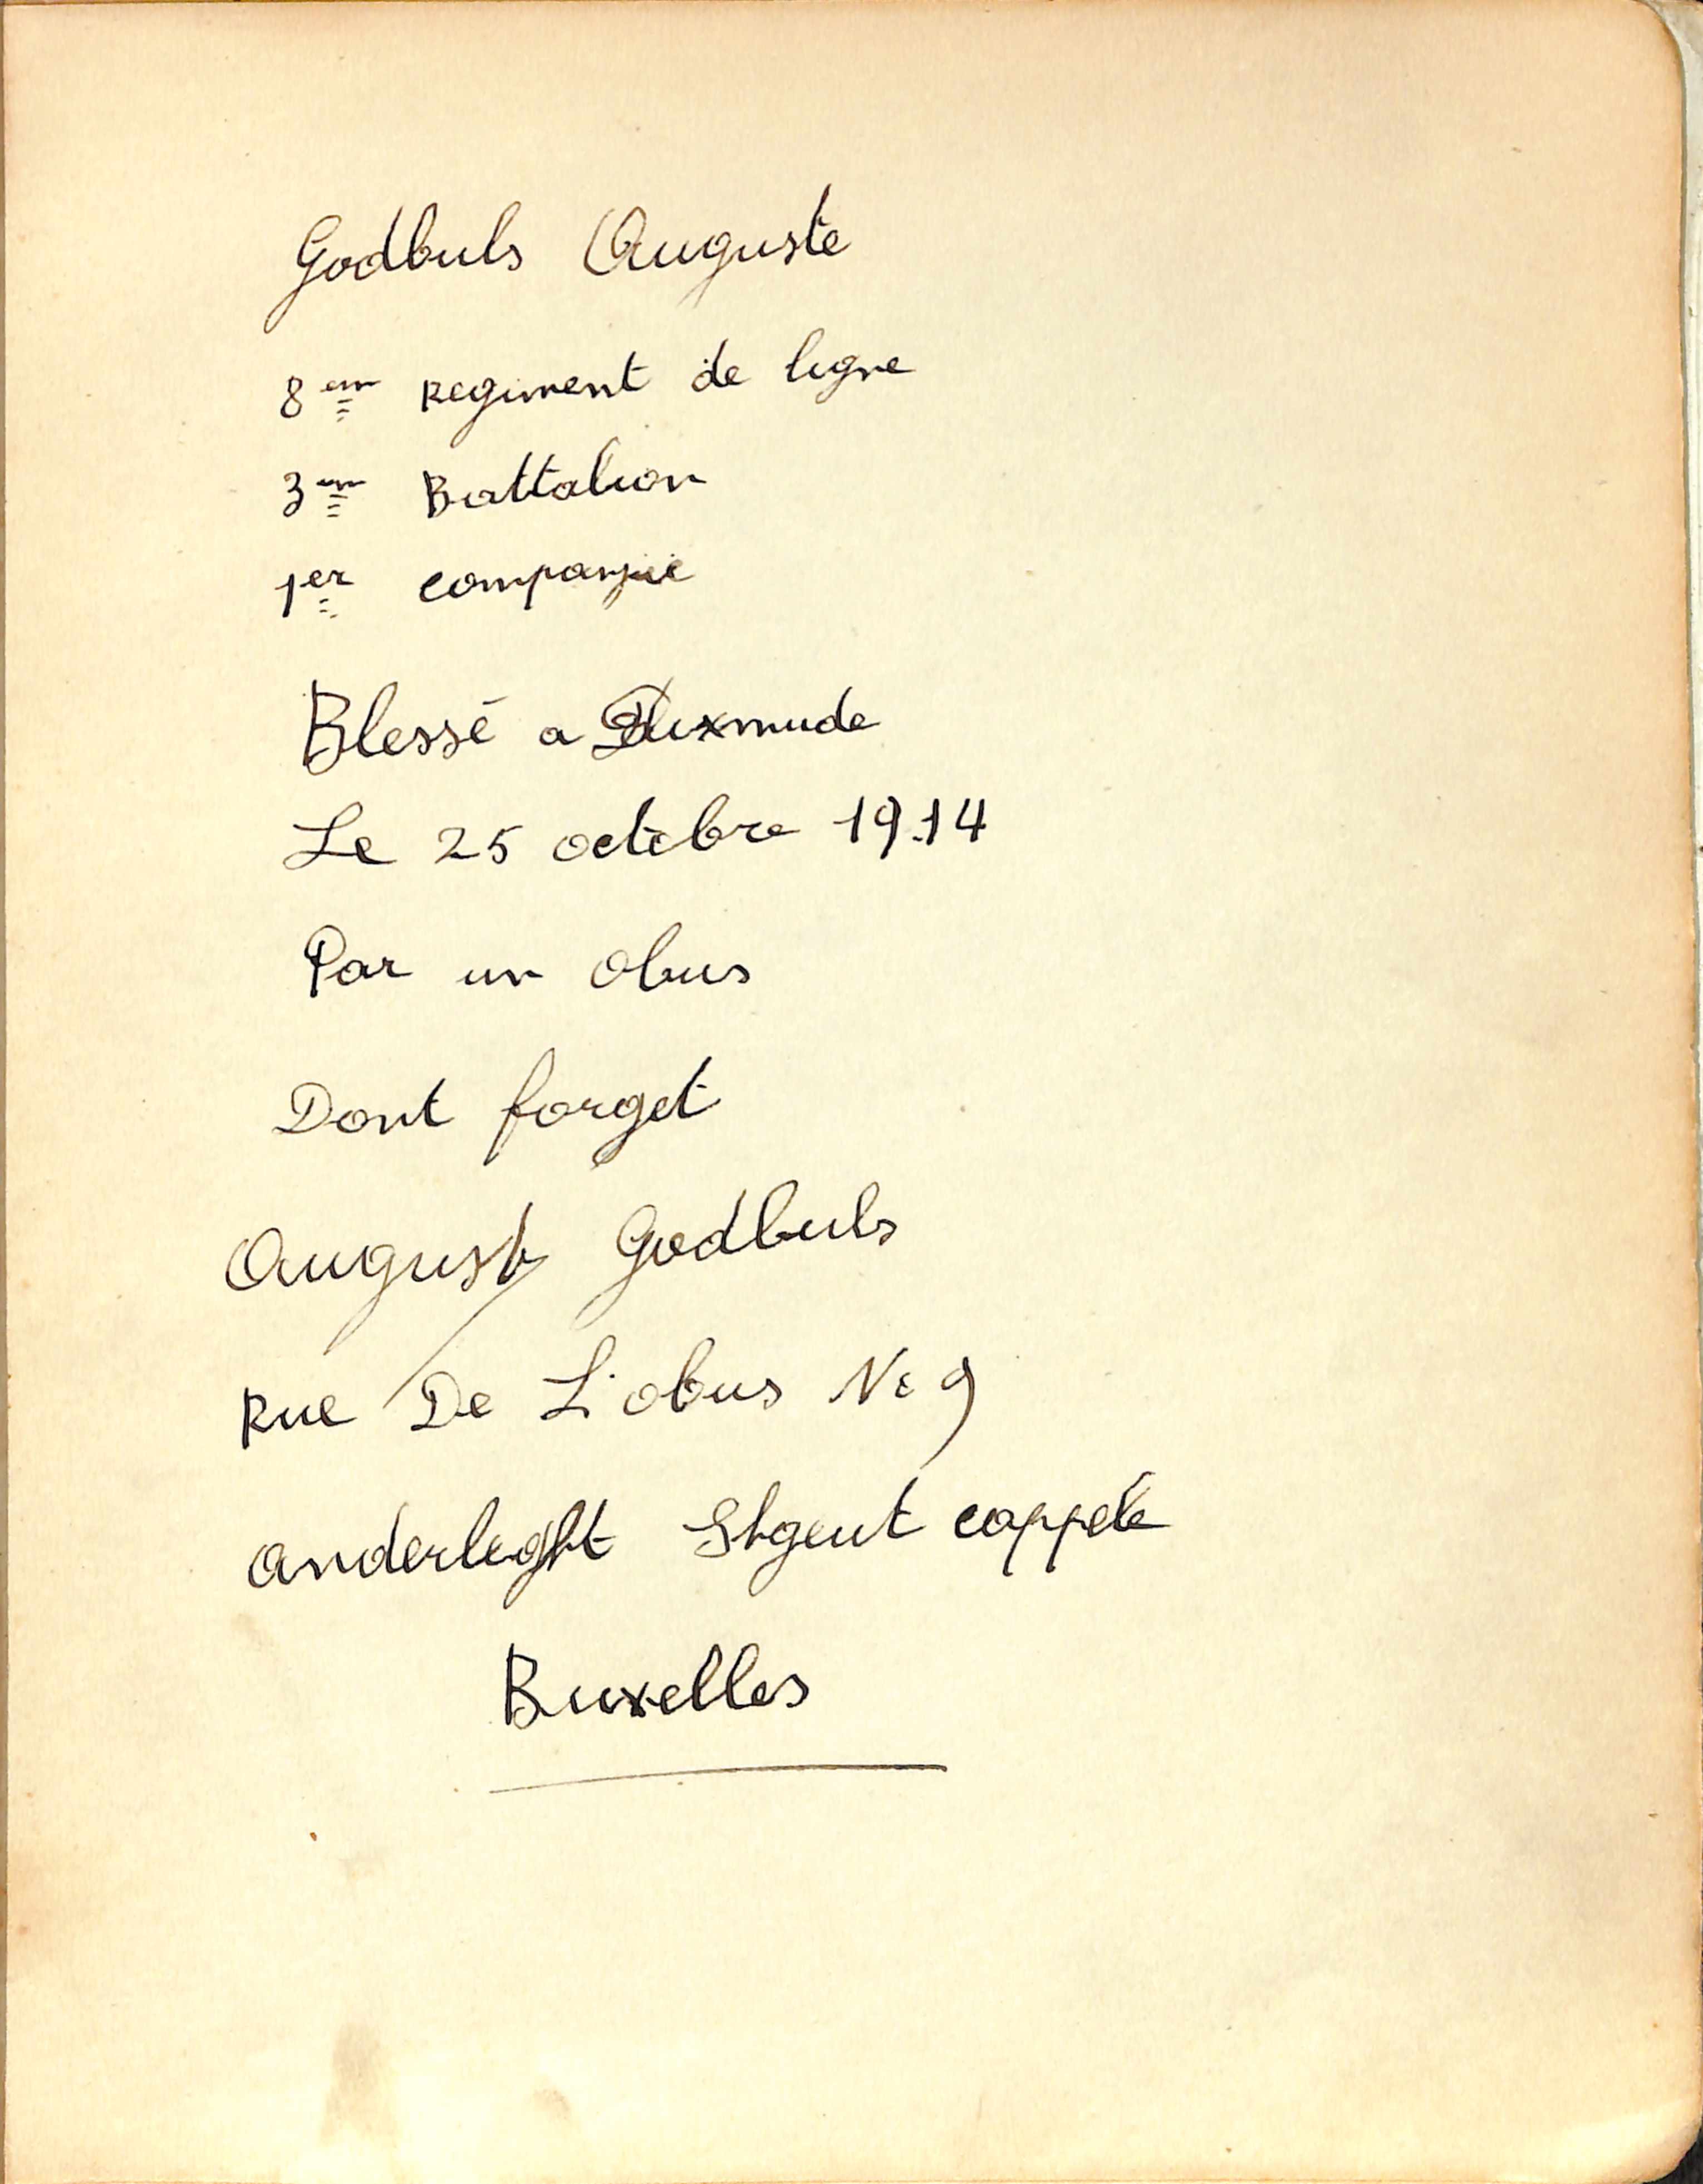 Godbuls Auguste
8em Regiment de ligne
3em Battalion
1er companjie
Blessé a Dixmude
Le 25 octobre 1914
Par un obus
Dont forget
August Godbuls
Rue De L'obus No 9
anderleght
Buxelles